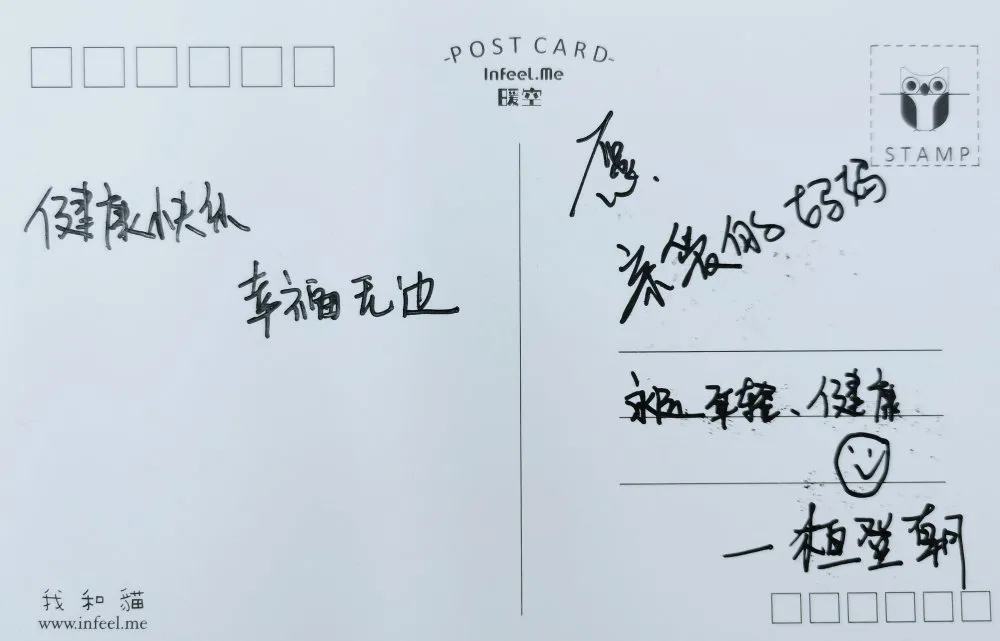 POST CARD
Infeel.Me
暖空
STAMP
健康快乐
幸福无边
愿
亲爱的妈妈
永远年轻、健康
一 植登朝
我和猫
www.infeel.me